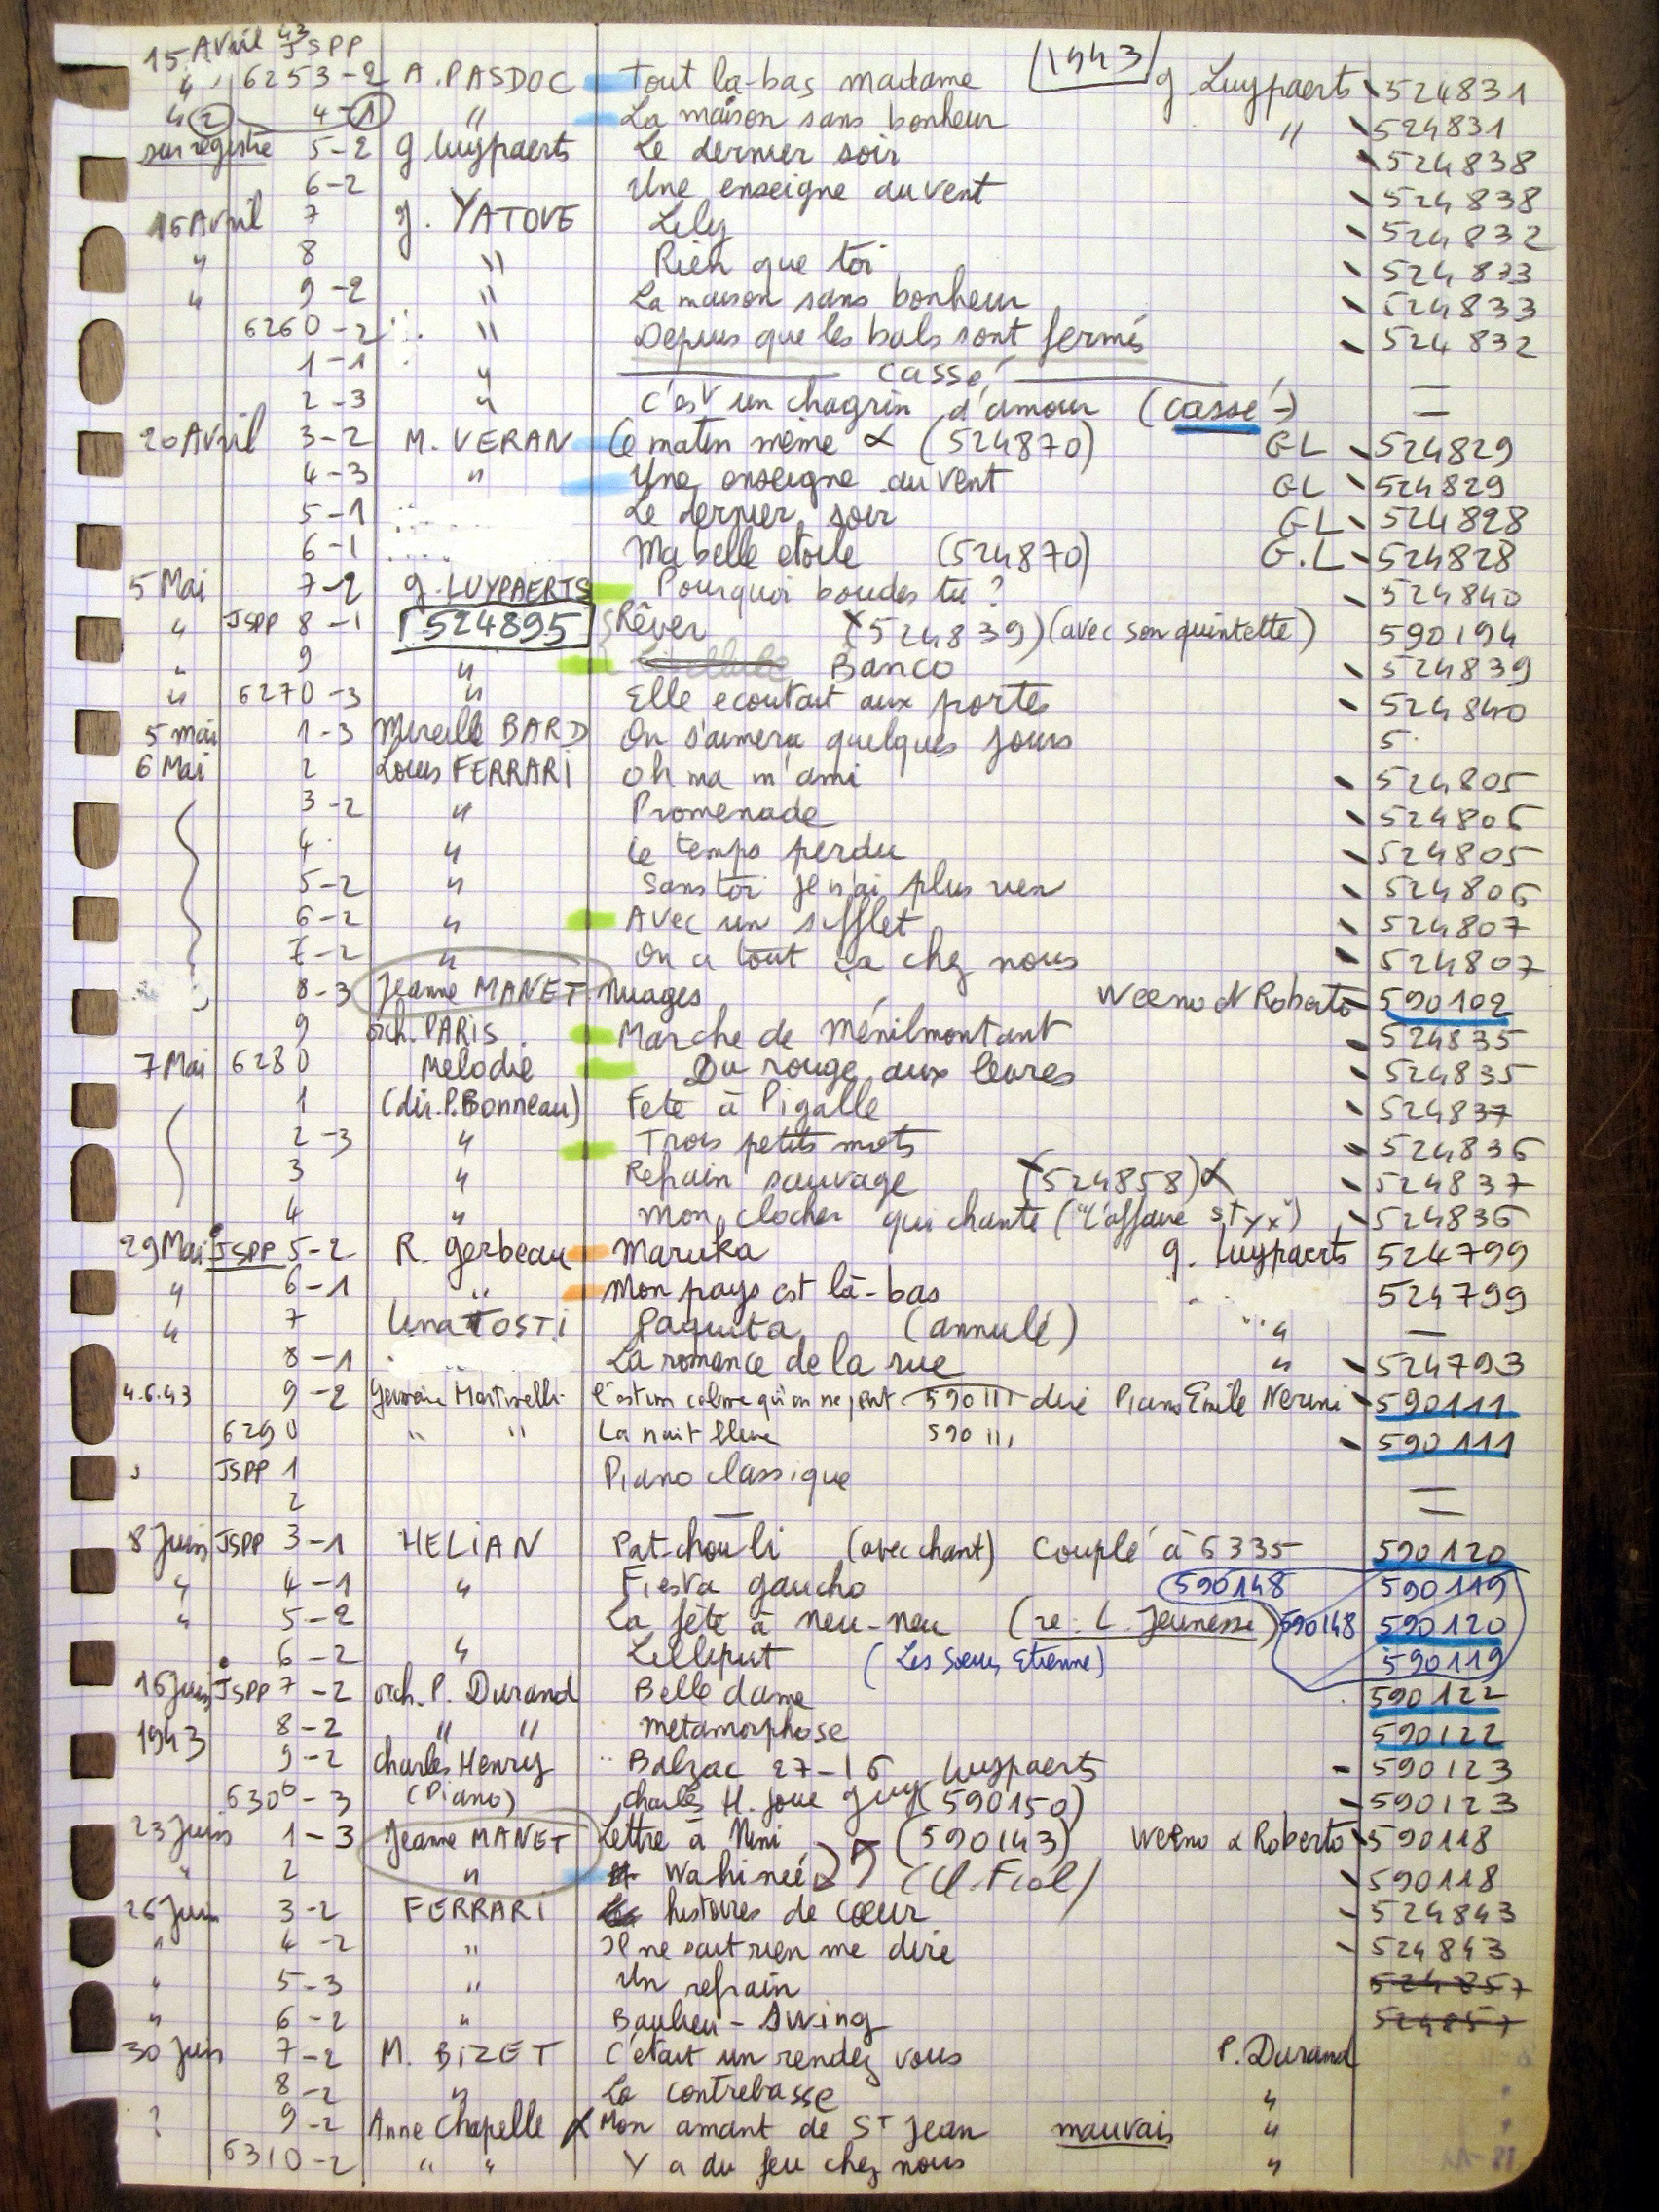 15 Avril 43 JSPP
" 6253-2 A. PASDOC Tout là-bas madame 1943 g Luypaerts 524831
" 2 4-1 " La maison sans bonheur " 524831
sur registre 5-2 g Luypaerts Le dernier soir 524838
6-2 Une enseigne au vent 524838
16 Avril 7 J. YATOVE Lily 524832
" 8 " Rien que toi 524833
" 9-2 " La maison sans bonheur 524833
6260-2 " Depuis que les bals sont fermés 524832
1-1 " cassé —
2-3 " C'est un chagrin d'amour (cassé-) —
20 Avril 3-2 M. VERAN Ce matin même α (524870) GL 524829
4-3 " Une enseigne au vent GL 524829
5-1 Le dernier soir GL 524828
6-1 Ma belle etoile (524870) G.L 524828
5 Mai 7-2 g. LUYPAERTS Pourquoi boudes tu ? 524840
" JSPP 8-1 524895 Rêver (524839) (avec son quintette) 590194
" 9 " Banco 524839
" 6270-3 " Elle ecoutait aux portes 524840
5 mai 1-3 Mireille BARD On s'aimera quelques jours 5
6 Mai 2 Louis FERRARI Oh ma m'ami 524805
3-2 " Promenade 524806
4 " Le temps perdu 524805
5-2 " Sans toi je n'ai plus rien 524806
6-2 " Avec un sifflet 524807
7-2 " On a tout ça chez nous 524807
8-3 Jeanne MANET Nuages Weeno & Roberto 590102
9 orch. PARIS Marche de Ménilmontant 524835
7 Mai 6280 Melodie Du rouge aux levres 524835
1 (dir. P. Bonneau) Fete à Pigalle 524837
2-3 " Trois petits mots 524836
3 " Refrain sauvage (524858) α 524837
4 " Mon clocher qui chante ("L'affaire Styx") 524836
29 Mai JSPP 5-2 R. Gerbeau Maruka g. Luypaerts 524799
" 6-1 " Mon pays est là-bas 524799
" 7 Lina TOSTI Paquita (annulé) " —
8-1 La romance de la rue " 524793
4.6.43 9-2 Germaine Martinelli C'est un calme qu'on ne peut dire 590111 Piano Emile Nerini 590111
6290 " " La nuit bleue 590111 590111
" JSPP 1 Piano classique
2 —
8 Juin JSPP 3-1 HELIAN Pat-chou-li (avec chant) couplé à 6335 590120
" 4-1 " Fiesta gaucho 590148 590119
" 5-2 La fête à neu-neu (re: L. Jeunesse) 590148 590120
6-2 " Lilliput (Les Soeurs Etienne) 590119
16 Juin JSPP 7-2 orch. P. Durand Belle dame 590122
1943 8-2 " " metamorphose 590122
9-2 Charles Henry Balzac 27-16 Luypaerts 590123
6300-3 (Piano) Charles H. joue Guy (590150) 590123
23 Juin 1-3 Jeanne MANET Lettre à Nini (590143) Weeno & Roberto 590118
" 2 " Wahineé 590118
26 Juin 3-2 FERRARI histoires de cœur 524843
" 4-2 " Il ne sait rien me dire 524843
" 5-3 " Un refrain 524857
" 6-2 " Banlieu-Swing 524857
30 Juin 7-2 M. BIZET C'était un rendez vous P. Durand
8-2 " La contrebasse "
? 9-2 Anne Chapelle α Mon amant de St Jean mauvais "
6310-2 " " Y a du feu chez nous "